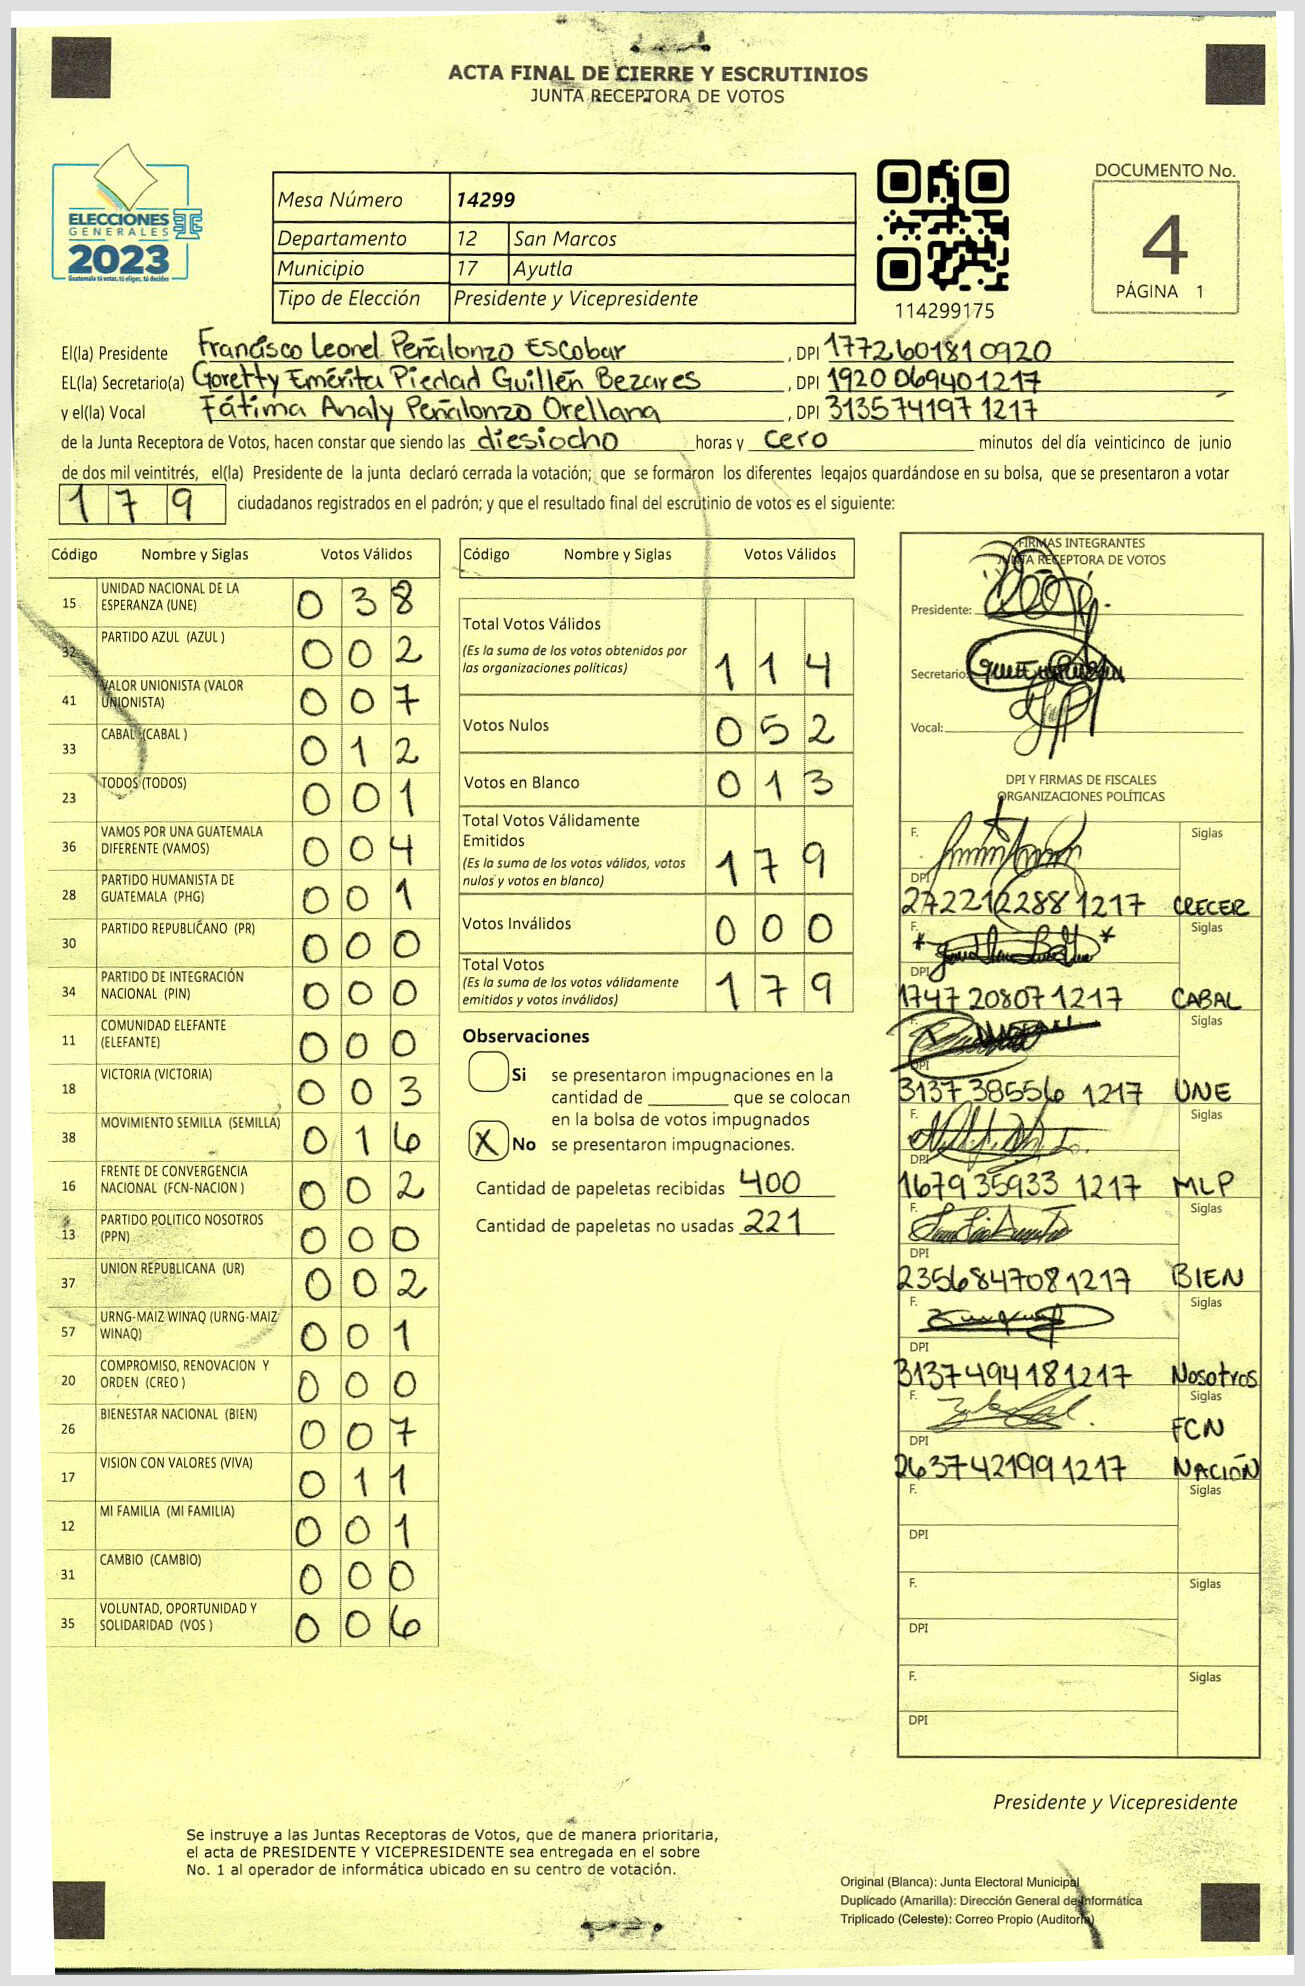 ACTA FINAL DE CIERRE Y ESCRUTINIOS
JUNTA RECEPTORA DE VOTOS
ELECCIONES
GENERALES
2023
Guatemala tú votas, tú eliges, tú decides
Mesa Número 14299
Departamento 12 San Marcos
Municipio 17 Ayutla
Tipo de Elección Presidente y Vicepresidente
114299175
DOCUMENTO No.
4
PÁGINA 1
El(la) Presidente Francisco Leonel Peñalonzo Escobar , DPI 1772601810920
EL(la) Secretario(a) Goretty Emérita Piedad Guillén Bezares , DPI 1920 069401217
y el(la) Vocal Fátima Analy Peñalonzo Orellana , DPI 313574197 1217
de la Junta Receptora de Votos, hacen constar que siendo las diesiocho horas y cero minutos del día veinticinco de junio
de dos mil veintitrés, el(la) Presidente de la junta declaró cerrada la votación; que se formaron los diferentes legajos quardándose en su bolsa, que se presentaron a votar
179 ciudadanos registrados en el padrón; y que el resultado final del escrutinio de votos es el siguiente:
Código Nombre y Siglas Votos Válidos
15 UNIDAD NACIONAL DE LA
ESPERANZA (UNE) 038
32 PARTIDO AZUL (AZUL ) 002
41 VALOR UNIONISTA (VALOR
UNIONISTA) 007
33 CABAL (CABAL ) 012
23 TODOS (TODOS) 001
36 VAMOS POR UNA GUATEMALA
DIFERENTE (VAMOS) 004
28 PARTIDO HUMANISTA DE
GUATEMALA (PHG) 001
30 PARTIDO REPUBLICANO (PR) 000
34 PARTIDO DE INTEGRACIÓN
NACIONAL (PIN) 000
11 COMUNIDAD ELEFANTE
(ELEFANTE) 000
18 VICTORIA (VICTORIA) 003
38 MOVIMIENTO SEMILLA (SEMILLA) 016
16 FRENTE DE CONVERGENCIA
NACIONAL (FCN-NACION ) 002
13 PARTIDO POLITICO NOSOTROS
(PPN) 000
37 UNION REPUBLICANA (UR) 002
57 URNG-MAIZ WINAQ (URNG-MAIZ
WINAQ) 001
20 COMPROMISO, RENOVACION Y
ORDEN (CREO ) 000
26 BIENESTAR NACIONAL (BIEN) 007
17 VISION CON VALORES (VIVA) 011
12 MI FAMILIA (MI FAMILIA) 001
31 CAMBIO (CAMBIO) 000
35 VOLUNTAD, OPORTUNIDAD Y
SOLIDARIDAD (VOS ) 006
Código Nombre y Siglas Votos Válidos
Total Votos Válidos
(Es la suma de los votos obtenidos por
las organizaciones políticas) 114
Votos Nulos 052
Votos en Blanco 013
Total Votos Válidamente
Emitidos
(Es la suma de los votos válidos, votos
nulos y votos en blanco) 179
Votos Inválidos 000
Total Votos
(Es la suma de los votos válidamente
emitidos y votos inválidos) 179
Observaciones
Si se presentaron impugnaciones en la
cantidad de ________ que se colocan
en la bolsa de votos impugnados
X No se presentaron impugnaciones.
Cantidad de papeletas recibidas 400
Cantidad de papeletas no usadas 221
FIRMAS INTEGRANTES
JUNTA RECEPTORA DE VOTOS
Presidente:
Secretario:
Vocal:
DPI Y FIRMAS DE FISCALES
ORGANIZACIONES POLÍTICAS
F. Siglas
DPI
2722122881217 CRECER
F. Siglas
DPI
1747 20807 1217 CABAL
F. Siglas
DPI
3137 38556 1217 UNE
F. Siglas
DPI
1679 35933 1217 MLP
F. Siglas
DPI
2356847081217 BIEN
F. Siglas
DPI
3137494181217 Nosotros
F. Siglas
FCN
DPI
2637421991217 NACIÓN
F. Siglas
DPI
F. Siglas
DPI
F. Siglas
DPI
Presidente y Vicepresidente
Se instruye a las Juntas Receptoras de Votos, que de manera prioritaria,
el acta de PRESIDENTE Y VICEPRESIDENTE sea entregada en el sobre
No. 1 al operador de informática ubicado en su centro de votación.
Original (Blanca): Junta Electoral Municipal
Duplicado (Amarilla): Dirección General de Informática
Triplicado (Celeste): Correo Propio (Auditoría)